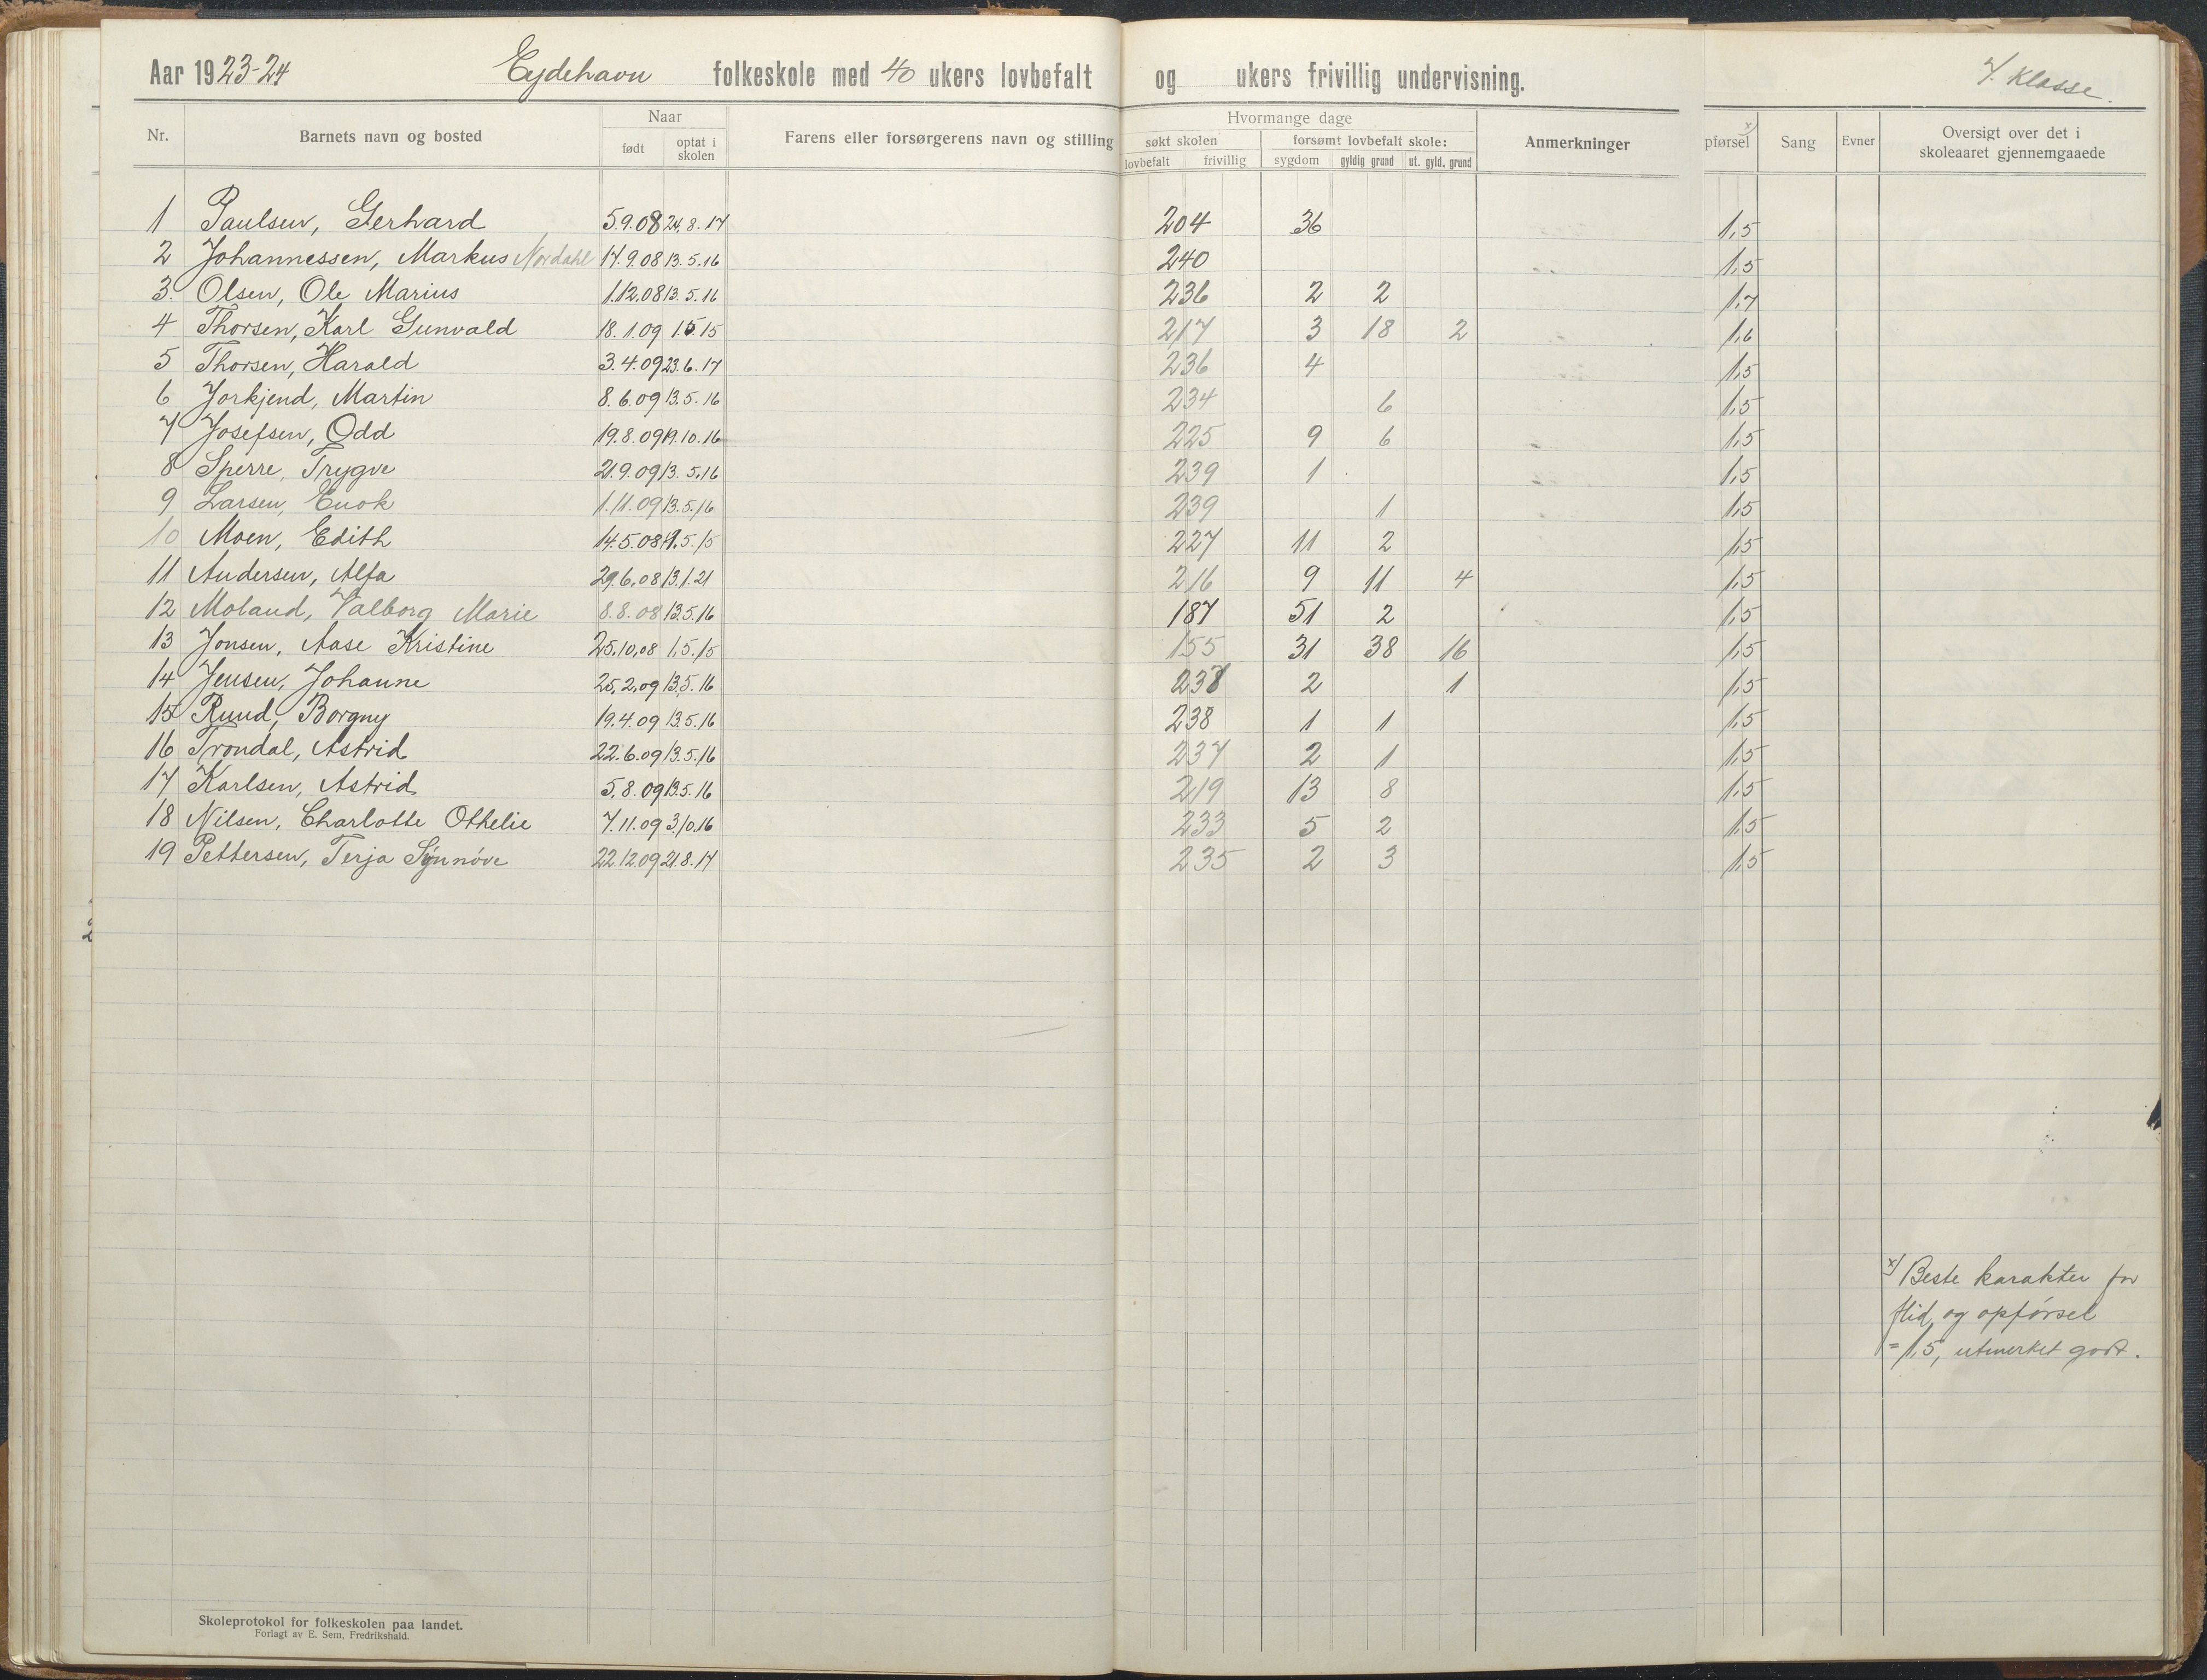 Aar 1923-24 Eydehavn folkeskole med 40 ukers lovbefalt og ukers frivillig undervisning. 7. Klasse.
Nr. Barnets navn og bosted Naar født optat i skolen Farens eller forsørgerens navn og stilling Hvormange dage søkt skolen lovbefalt frivillig forsømt lovbefalt skole: sygdom gyldig grund ut. gyld. grund Anmerkninger pførsel x) Sang Evner Oversigt over det i skoleaaret gjennemgaaede
1 Paulsen, Gerhard 5.9.08 24.8.17 204 36 1,5
2 Johannessen, Markus Nordahl 17.9.08 13.5.16 240 1,5
3. Olsen, Ole Marius 1.12.08 13.5.16 236 2 2 1,7
4 Thorsen, Karl Gunvald 18.1.09 1.5.15 217 3 18 2 1,6
5 Thorsen, Harald 3.4.09 23.6.17 236 4 1,5
6 Jorkjend, Martin 8.6.09 13.5.16 234 6 1,5
7 Josefsen, Odd 19.8.09 19.10.16 225 9 6 1,5
8 Sperre, Trygve 21.9.09 13.5.16 239 1 1,5
9 Larsen, Enok 1.11.09 13.5.16 239 1 1,5
10 Moen, Edith 14.5.08 1.5.15 227 11 2 1,5
11 Andersen, Alfa 29.6.08 13.1.21 216 9 11 4 1,5
12 Moland, Valborg Marie 8.8.08 13.5.16 187 51 2 1,5
13 Jonsen, Aase Kristine 25.10.08 1.5.15 155 31 38 16 1,5
14 Jensen, Johanne 25.2.09 13.5.16 237 2 1 1,5
15 Ruud, Borgny 19.4.09 13.5.16 238 1 1 1,5
16 Trondal, Astrid 22.6.09 13.5.16 237 2 1 1,5
17 Karlsen, Astrid 5.8.09 13.5.16 219 13 8 1,5
18 Nilsen, Charlotte Othelie 7.11.09 3.10.16 233 5 2 1,5
19 Pettersen, Terja Synnöve 22.12.09 21.8.17 235 2 3 1,5
x) Beste karakter for
flid og opførsel
= 1,5, utmerket godt.
Skoleprotokol for folkeskolen paa landet.
Forlagt av E. Sem, Fredrikshald.